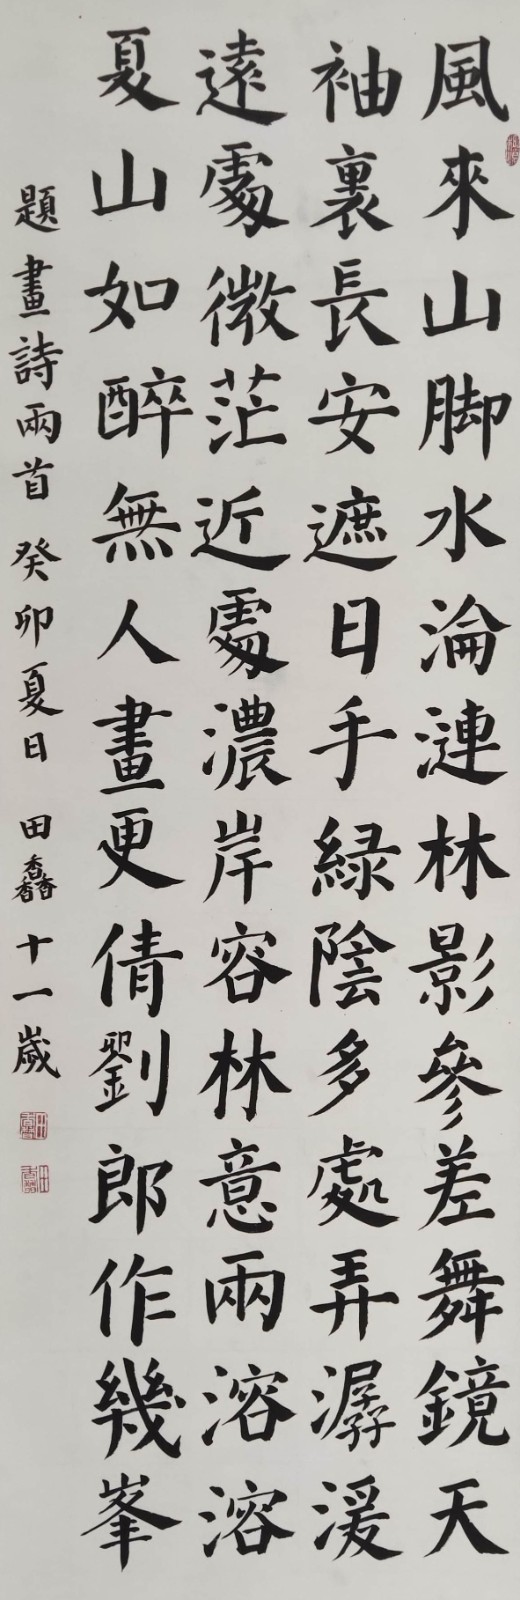 風來山脚水淪漣林影參差舞鏡天
袖裏長安遮日手綠陰多處弄潺湲
遠處微茫近處濃岸容林意兩溶溶
夏山如醉無人畫更倩劉郎作幾峯
題畫詩兩首 癸卯夏日 田馫十一歲